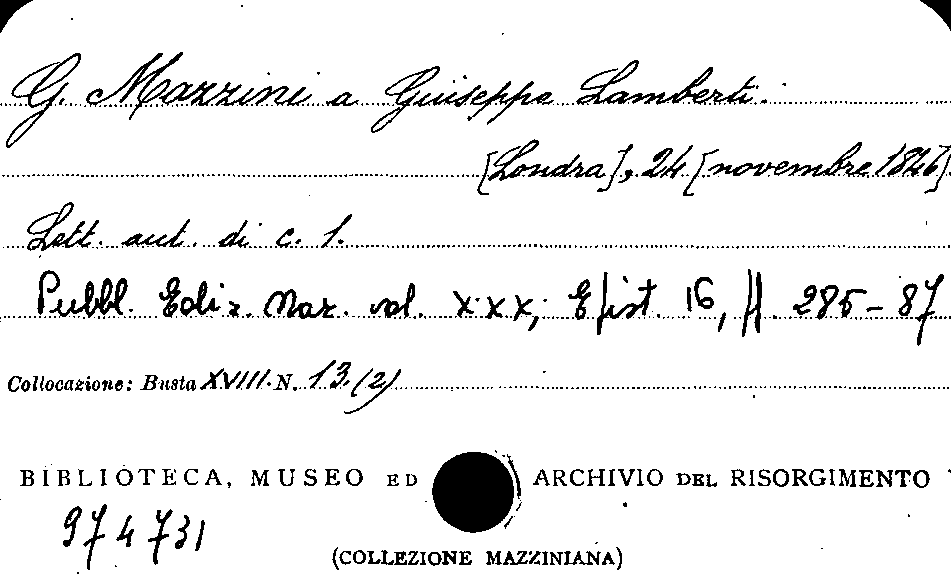 G. Mazzini a Giuseppe Lamberti.
[Londra], 24 [novembre 1846].
Lett. aut. di c. 1.
Pubbl. Ediz. Naz. vol. XXX; Epist. 16, pp. 285-87
Collocazione: Busta XVIII. N. 13.(2)
BIBLIOTECA, MUSEO ED ARCHIVIO DEL RISORGIMENTO
974731
(COLLEZIONE MAZZINIANA)